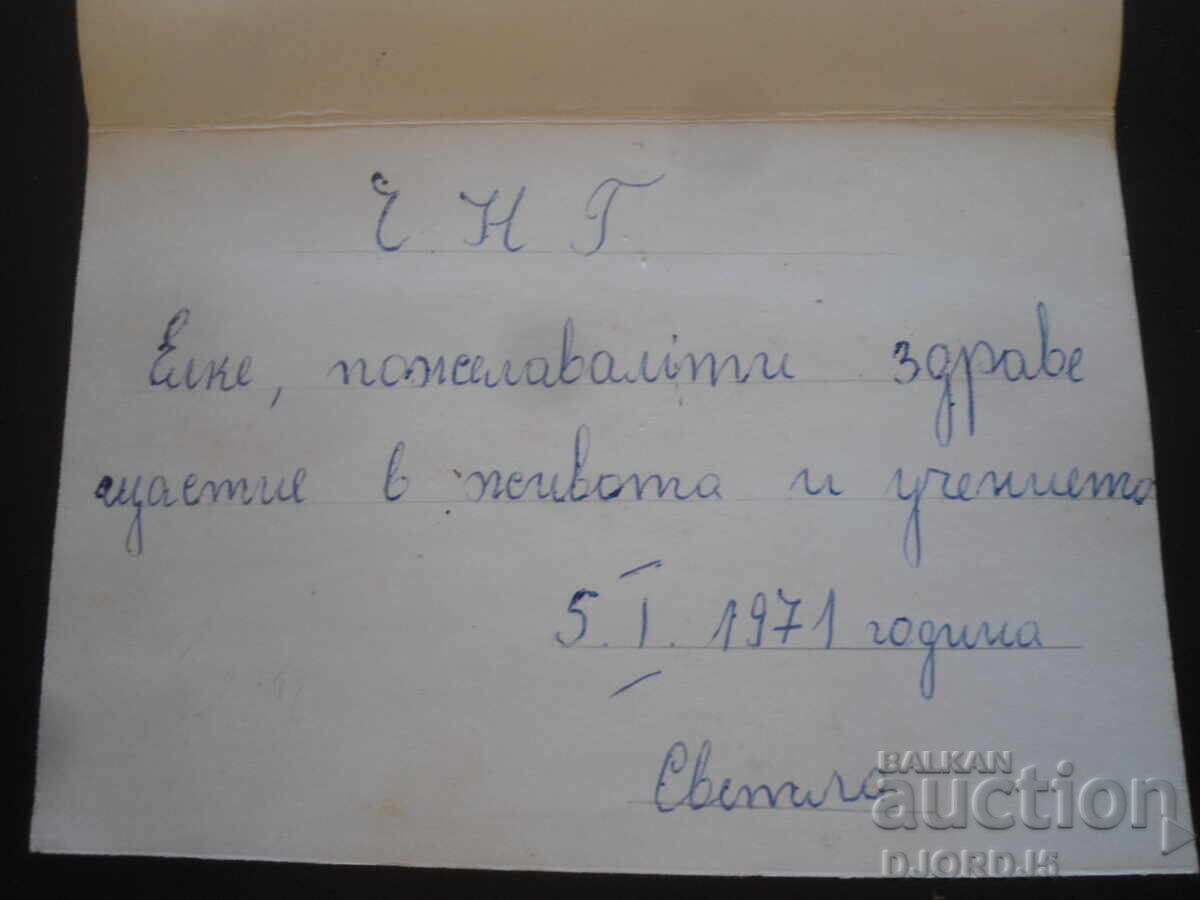 Ч. Н. Г.
Елке, пожелавамти здраве
щастие в живота и учението
5. I. 1971 година
BALKAN
auction
DJORDJ5